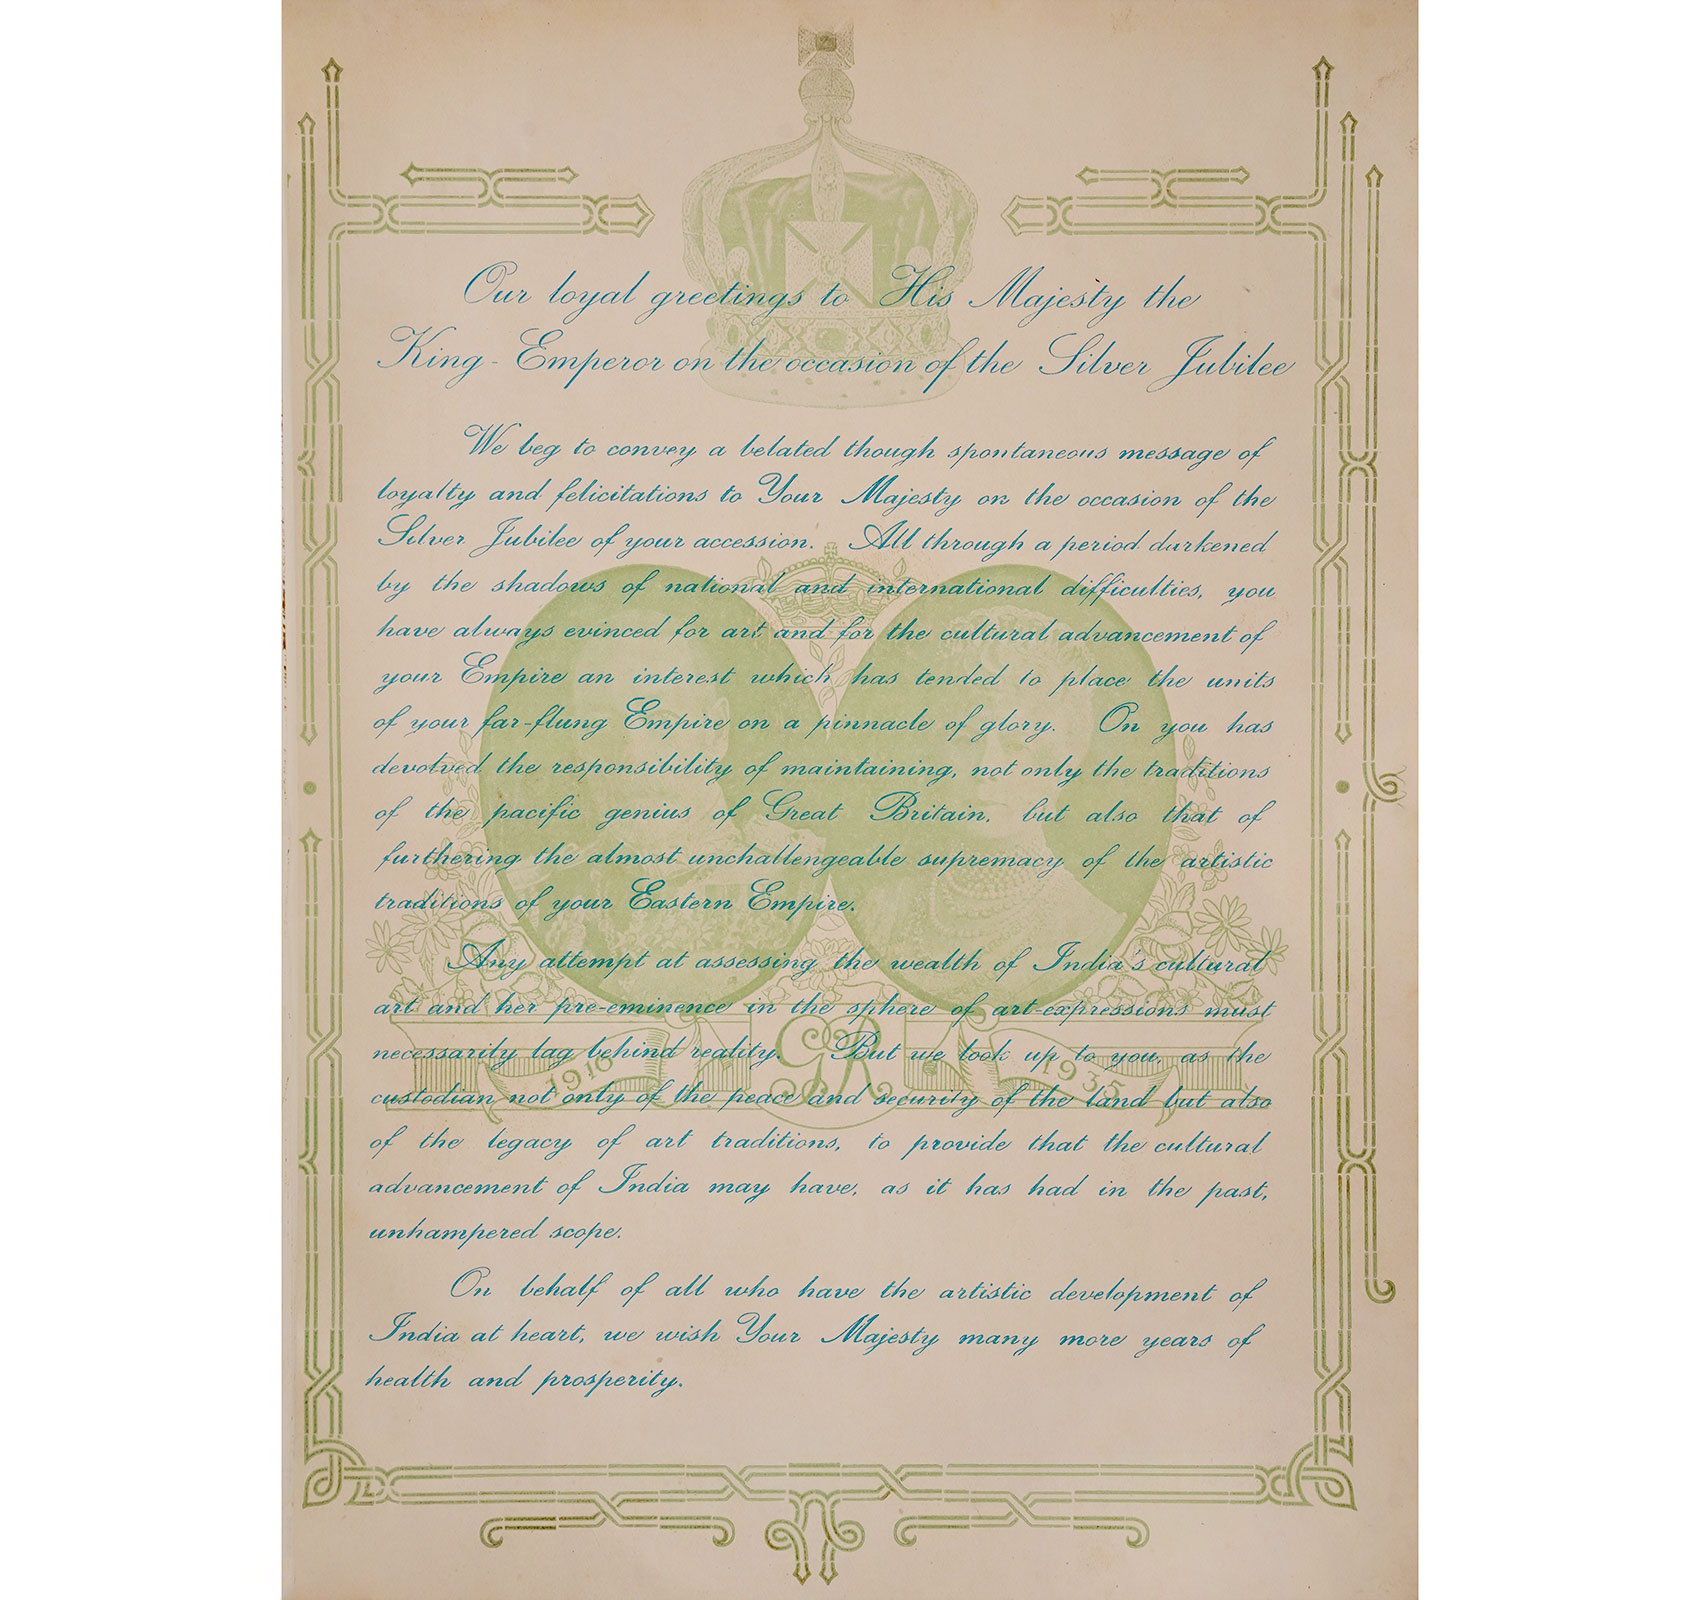 Our loyal greetings to His Majesty the
King-Emperor on the occasion of the Silver Jubilee
We beg to convey a belated though spontaneous message of
loyalty and felicitations to Your Majesty on the occasion of the
Silver Jubilee of your accession. All through a period darkened
by the shadows of national and international difficulties, you
have always evinced for art and for the cultural advancement of
your Empire an interest which has tended to place the units
of your far-flung Empire on a pinnacle of glory. On you has
devolved the responsibility of maintaining, not only the traditions
of the pacific genius of Great Britain, but also that of
furthering the almost unchallengeable supremacy of the artistic
traditions of your Eastern Empire.
Any attempt at assessing the wealth of India's cultural
art and her pre-eminence in the sphere of art-expressions must
necessarily lag behind reality. But we look up to you, as the
custodian not only of the peace and security of the land but also
of the legacy of art traditions, to provide that the cultural
advancement of India may have, as it has had in the past,
unhampered scope.
On behalf of all who have the artistic development of
India at heart, we wish Your Majesty many more years of
health and prosperity.
1910 GR 1935